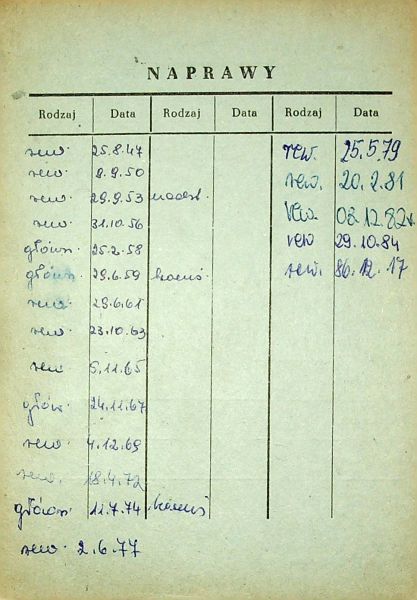 NAPRAWY
Rodzaj Data Rodzaj Data Rodzaj Data
rew. 25.8.47 rew. 25.5.79
rew. 9.9.50 rew. 20.2.81
rew. 29.9.53 rew. 03.12.82r
rew. 31.10.56 rew 29.10.84
główn. 25.2.58 rew. 86.12.17
główn. 29.6.59
rew. 29.6.61
rew 23.10.63
rew 5.11.65
głów. 24.11.67
rew 4.12.69
rew. 18.4.72
główn. 11.7.74
rew. 2.6.77